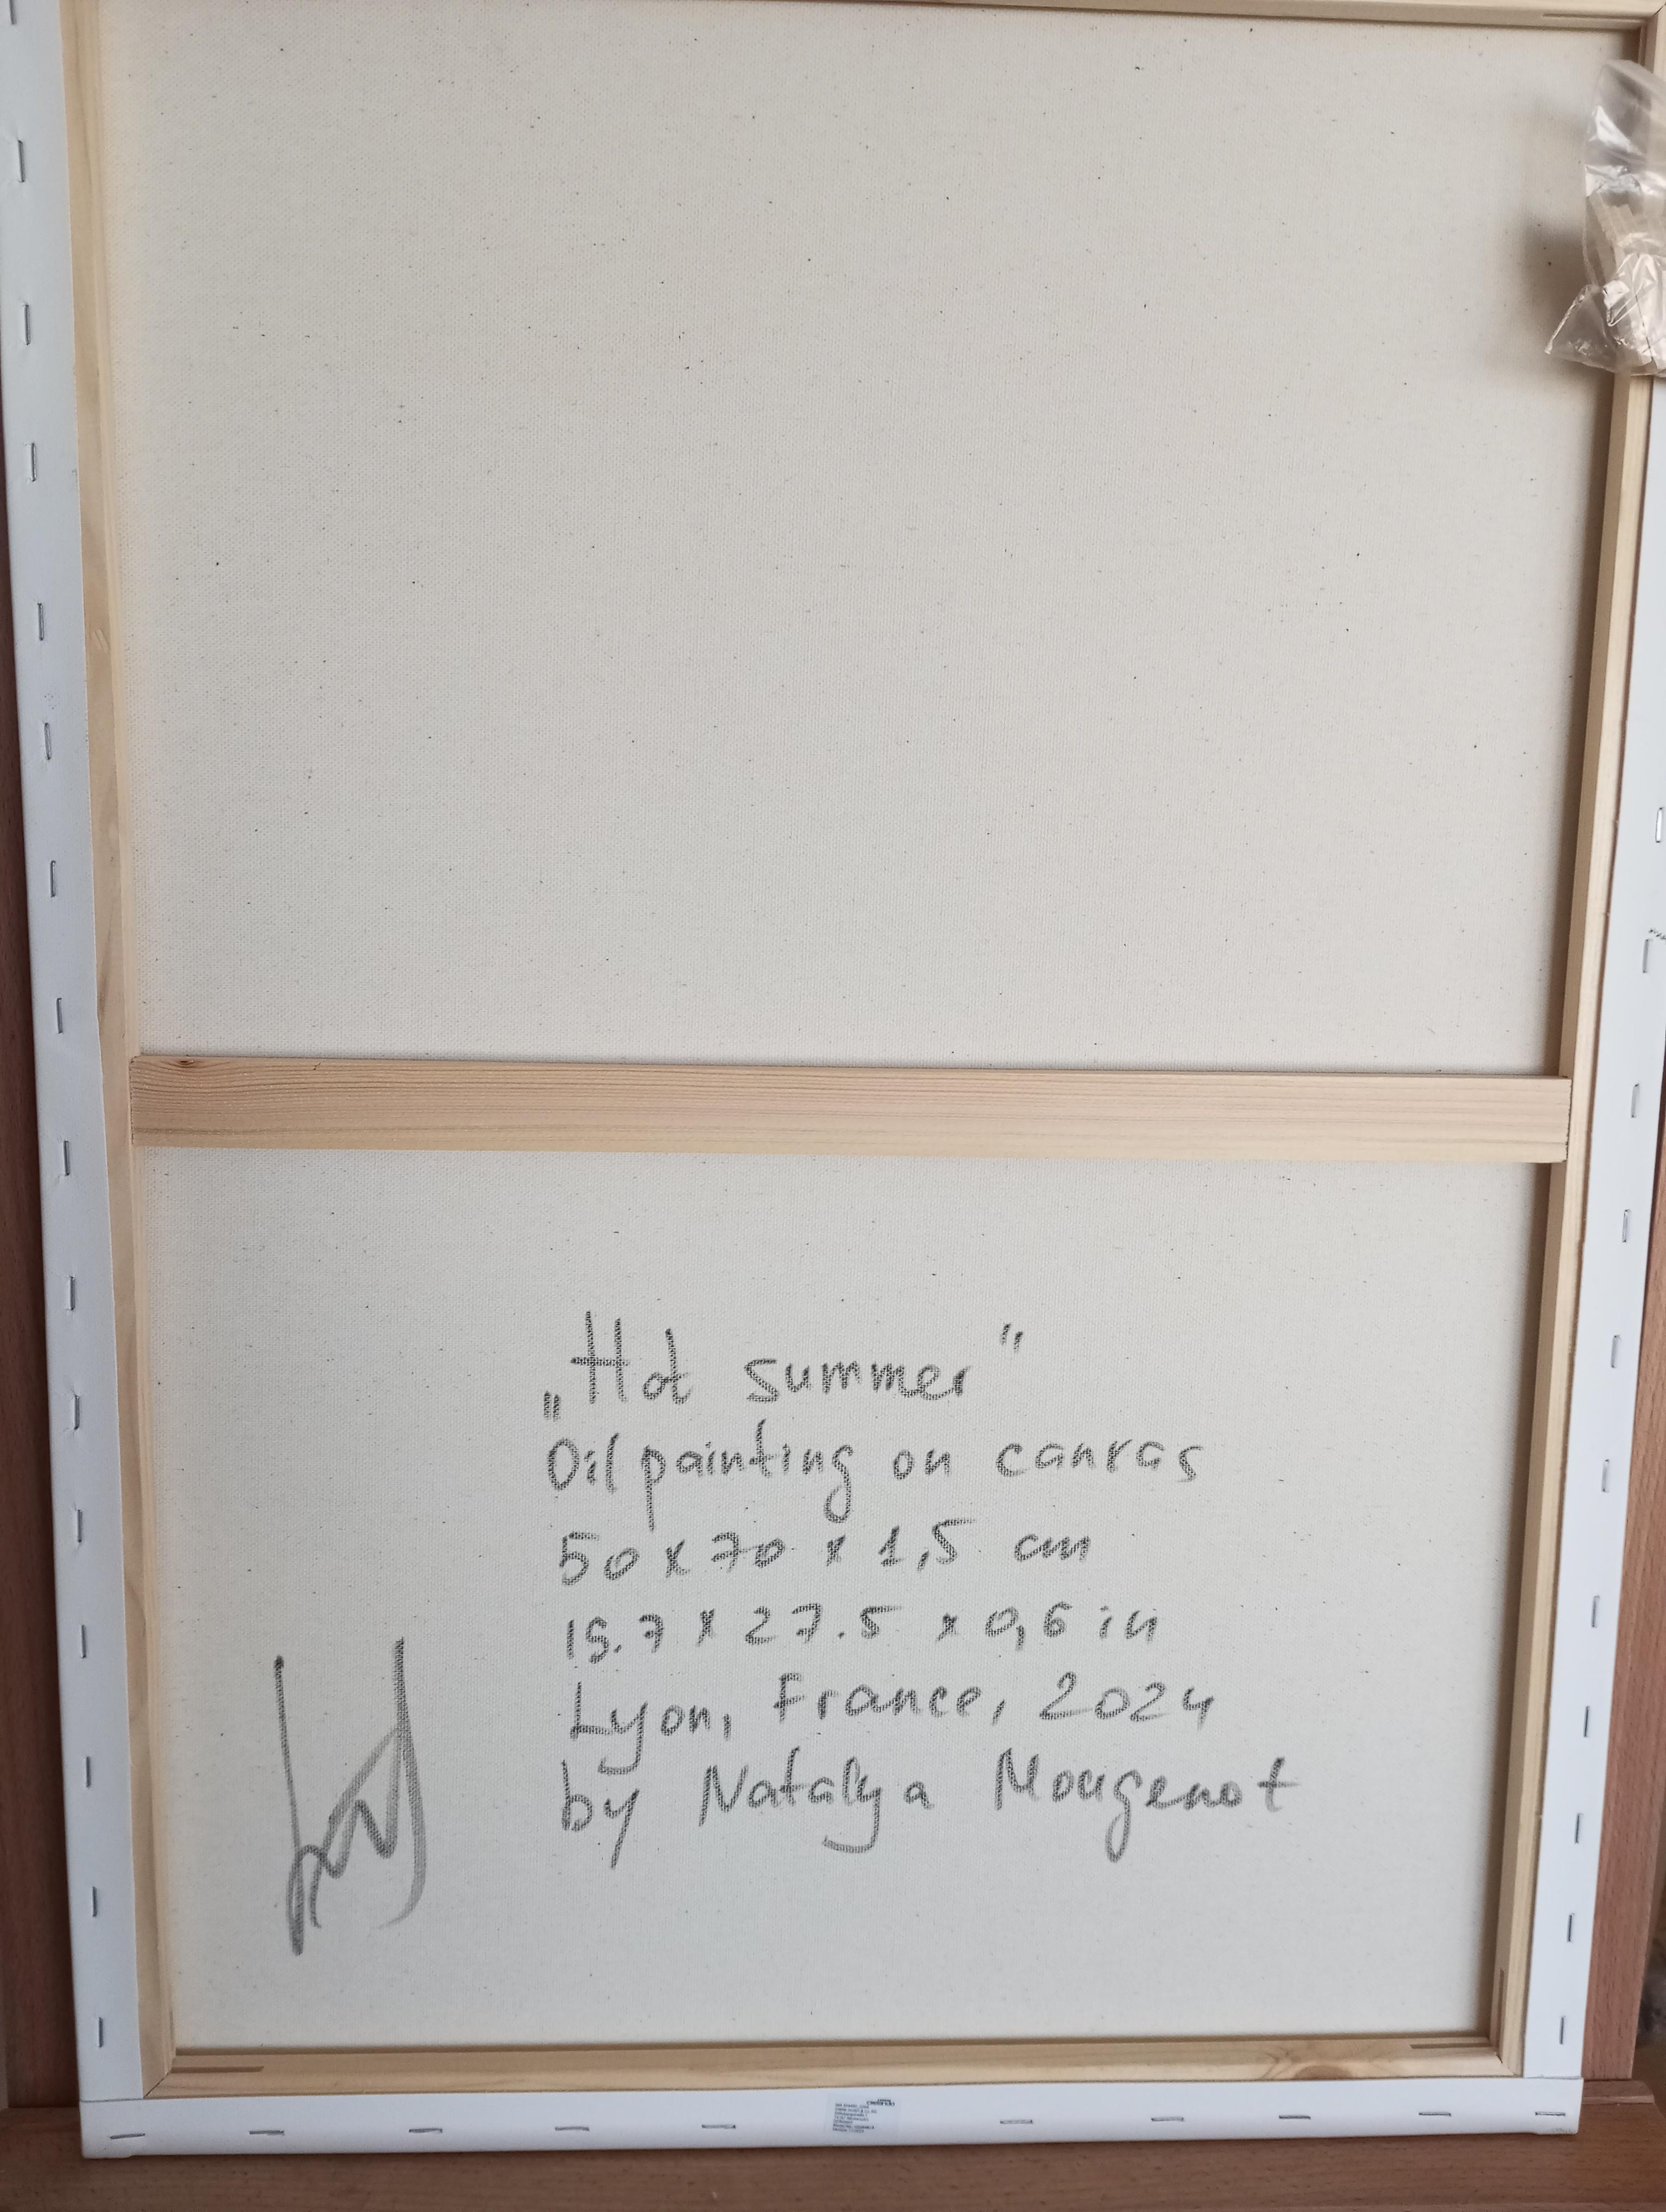 „Hot summer"
Oil painting on canvas
50 x 70 x 1,5 cm
19.7 x 27.5 x 0,6 in
Lyon, France, 2024
by Natalya Mougenot